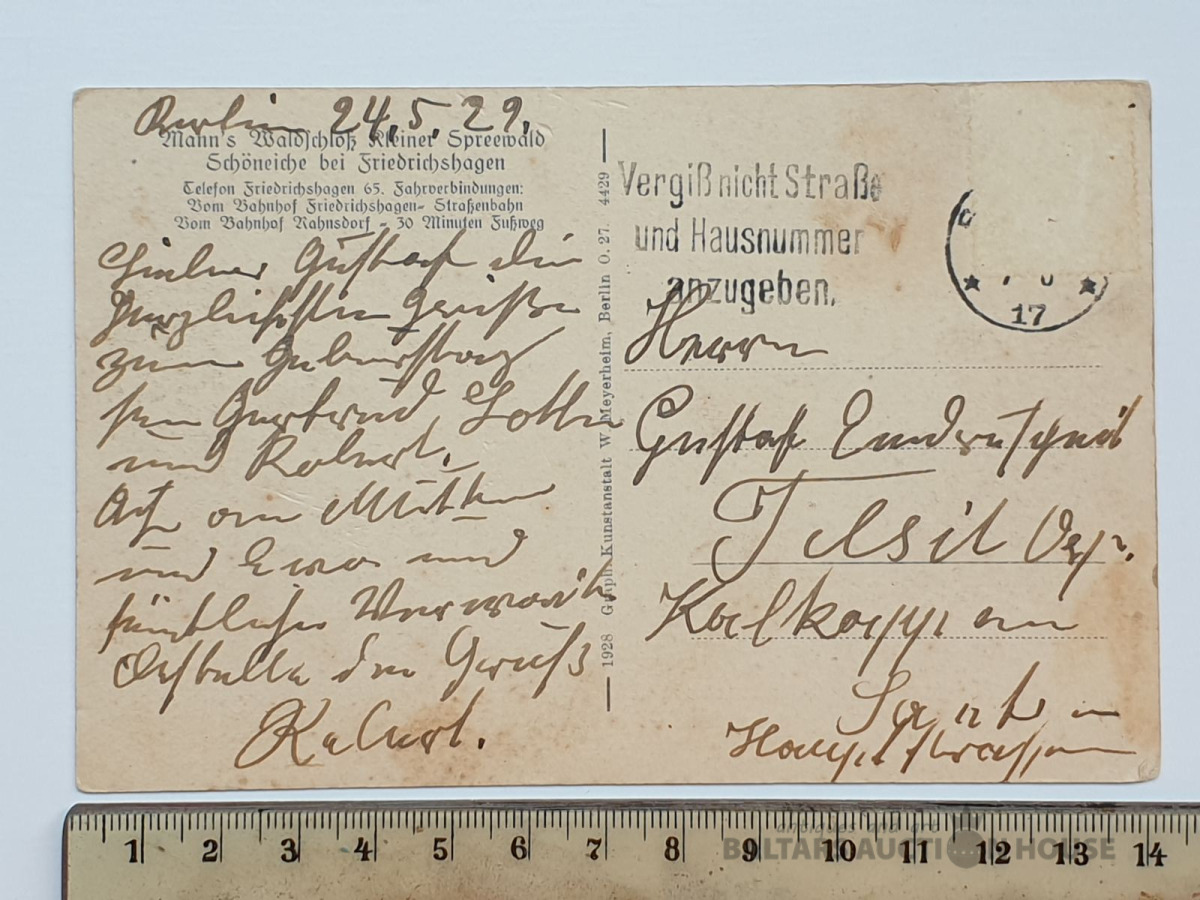 Berlin 24.5.29.
Mann's Waldschloß Kleiner Spreewald
Schöneiche bei Friedrichshagen
Telefon Friedrichshagen 65. Fahrverbindungen:
Vom Bahnhof Friedrichshagen- Straßenbahn
Vom Bahnhof Rahnsdorf - 30 Minuten Fußweg
Lieber Gustaf die
herzlichsten Grüße
zum Geburtstag
von Gertrud, Lotte
und Robert.
an Mutter
und Ewa und
sämtliche Verwandte
Bestelle den Gruß
Robert.
1928 Graph. Kunstanstalt W. Meyerheim, Berlin O. 27. 4429
Vergiß nicht Straße
und Hausnummer
anzugeben.
17
Herrn
Gustaf
Tilsit Ostpr.
Kalkappen
1 2 3 4 5 6 7 8 9 10 11 12 13 14
antiques and art
BALTARI AUCTION HOUSE